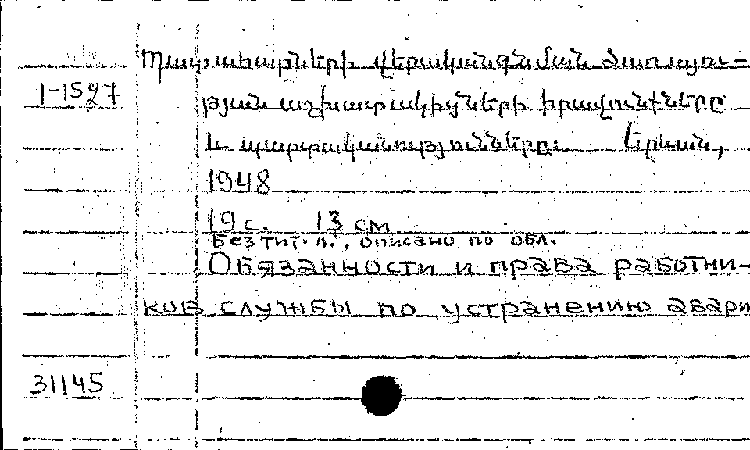 Պատահարների վերականգնման ծառայու-
1-1527
թյան աշխատակիցների իրավունքները
և պարտականությունները. Երևան,
1948
19 с. 13 см.
Без тит. л., описано по обл.
Обязанности и права работни-
ков службы по устранению авари
31145